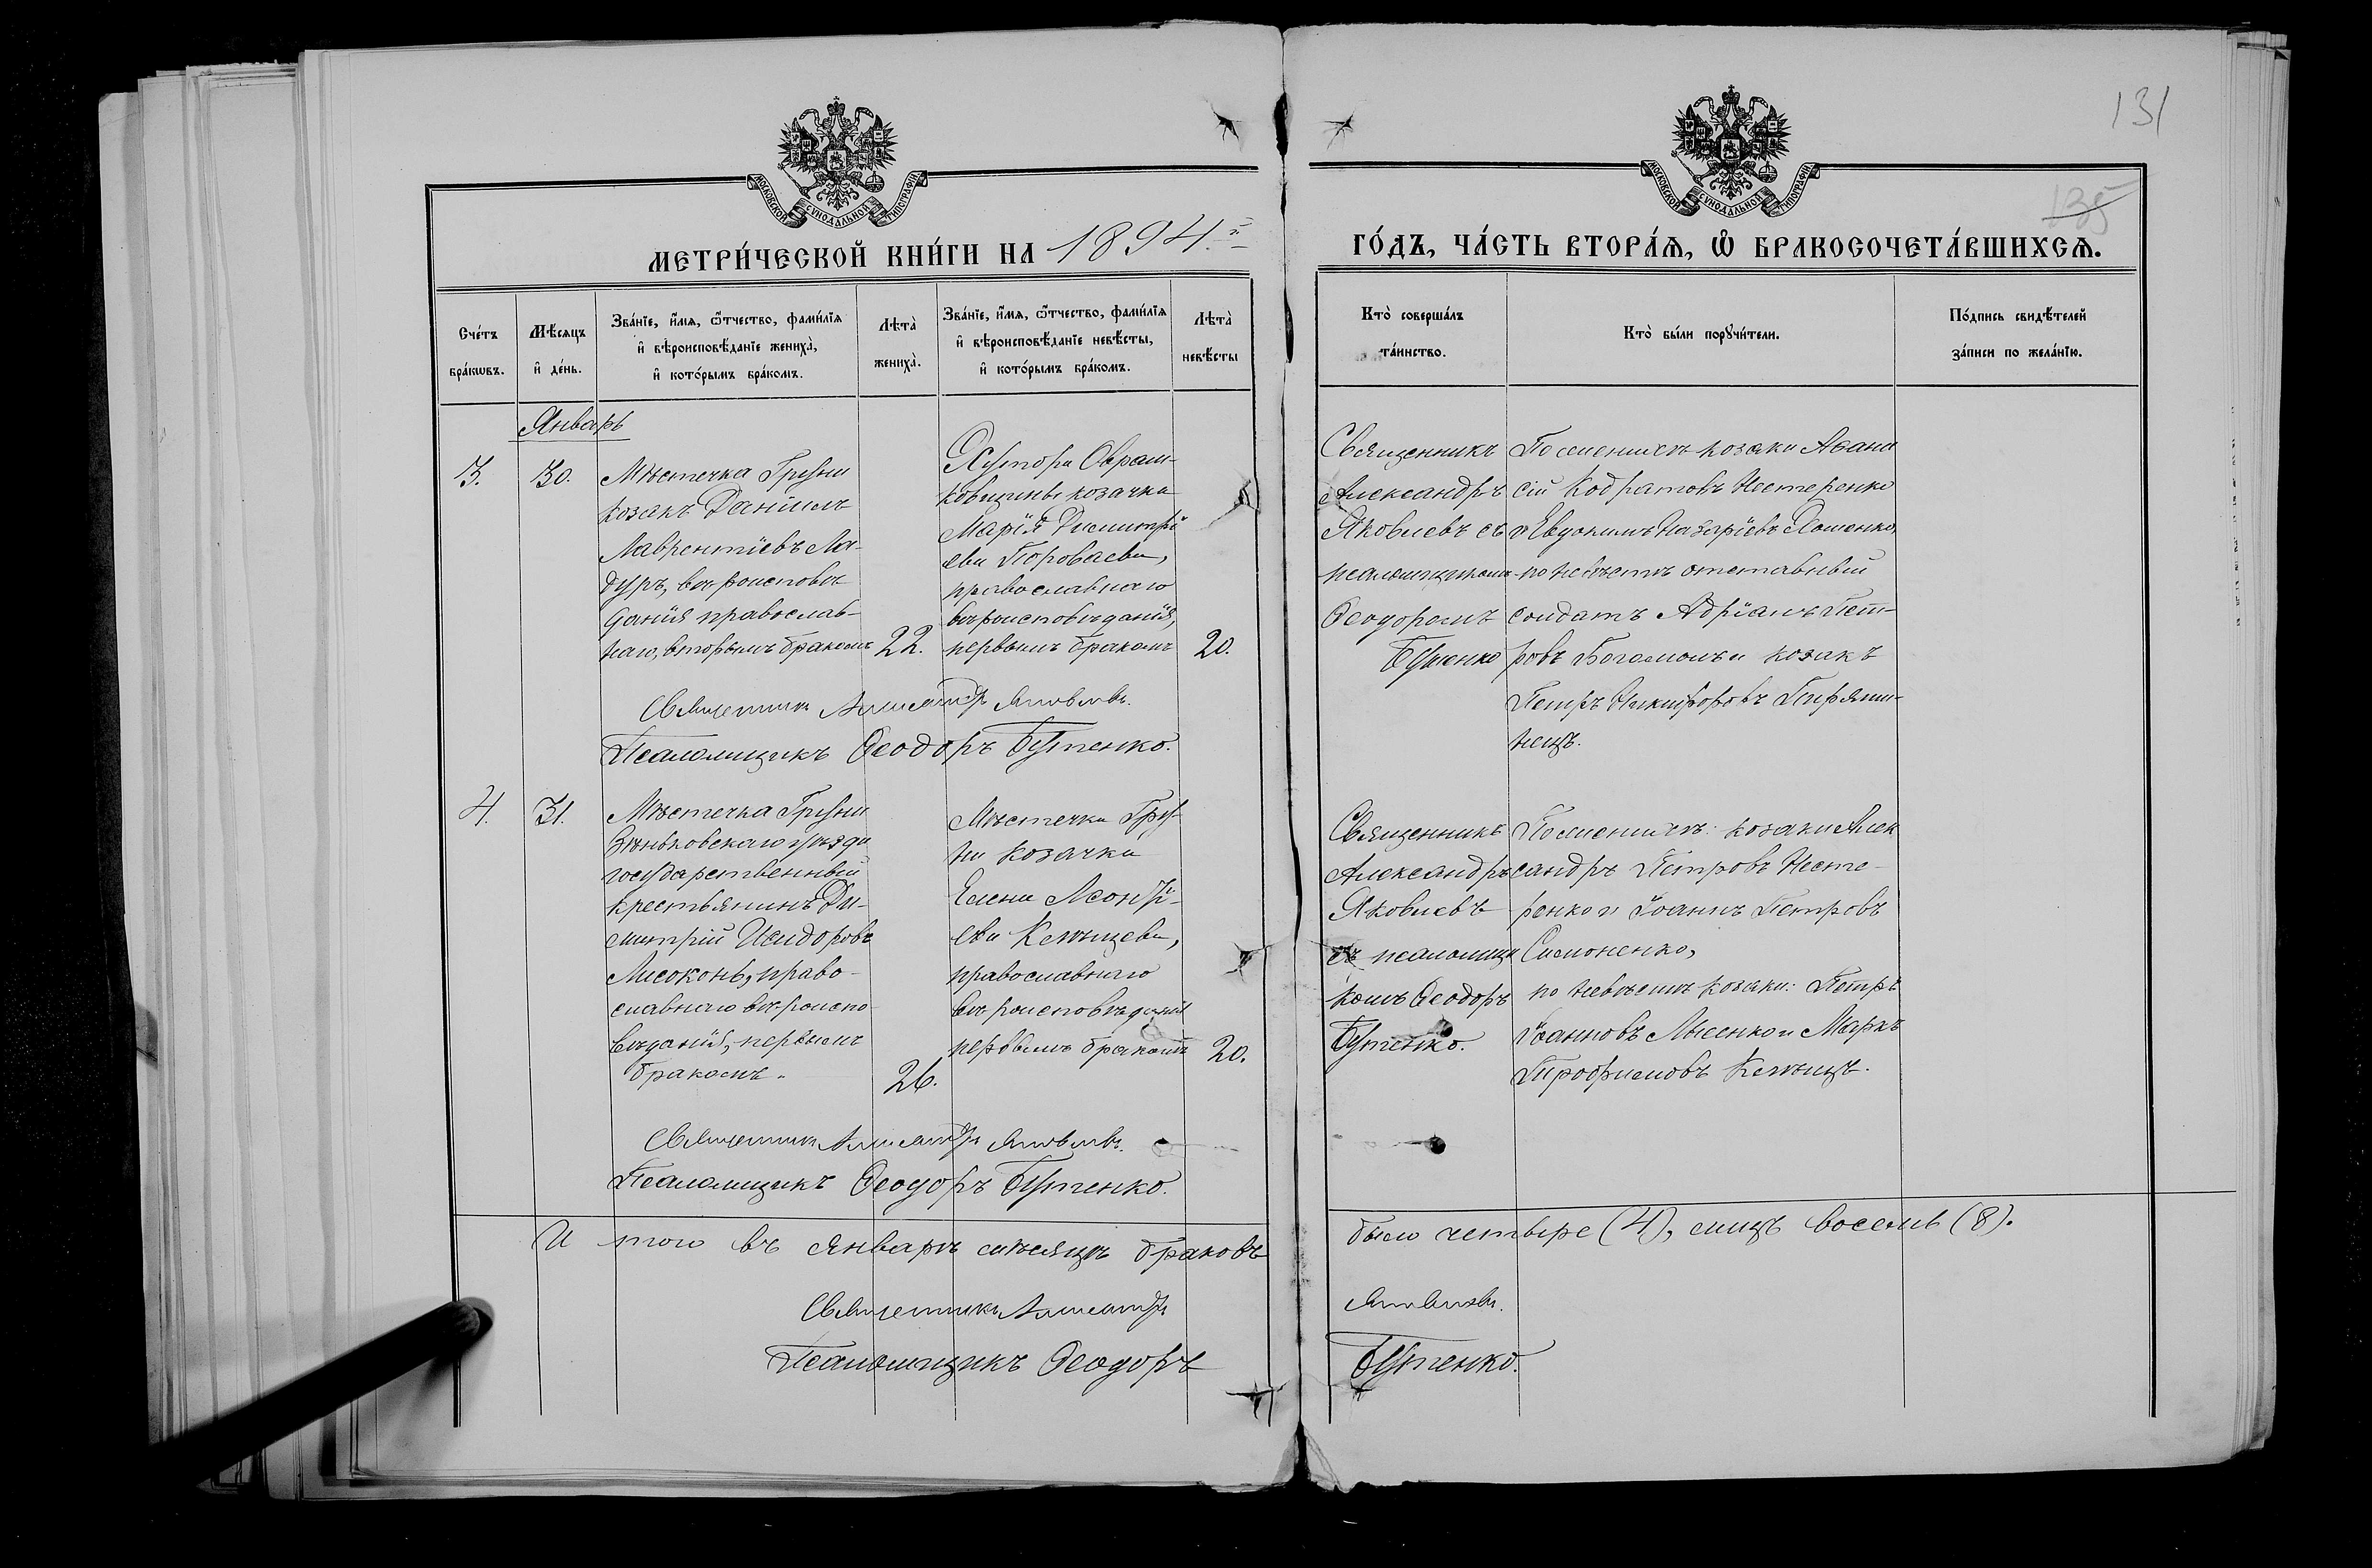 131
135
МОСКОВСКОЙ СѴНОДАЛЬНОЙ ТИПОГРАФІИ
МОСКОВСКОЙ СѴНОДАЛЬНОЙ ТИПОГРАФІИ
МЕТРИ́ЧЕСКОЙ КНИ́ГИ НА 1894.й
ГО́ДЪ, ЧА́СТЬ ВТОРА́Я, Ѡ҆ БРАКОСОЧЕТА́ВШИХСЯ.
Сче́тъ
бра́кѡвъ.
Мѣ́сяцъ
и҆ де́нь.
Зва́нїе, и҆́мя, ѻ҆́тчество, фами́лїя
и҆ вѣроисповѣ́данїе жениха̀,
и҆ кото́рымъ бра́комъ.
Лѣта̀
жениха̀.
Зва́нїе, и҆́мя, ѻ҆́тчество, фами́лїя
и҆ вѣроисповѣ́данїе невѣ́сты,
и҆ кото́рымъ бра́комъ.
Лѣта̀
невѣ́сты
Кто̀ соверша́лъ
та́инство.
Кто̀ бы́ли порꙋчи́тели.
По́дпись свидѣ́телей
за́писи по жела́нїю.
Январь
3.
30.
Мѣстечка Груни
козакъ Даніилъ
Лаврентіевъ Ла-
дуръ, вѣроисповѣ
данія православ-
наго, вторымъ бракомъ
22.
Хутора Овраш-
ковщины козачка
Марія Димитрі
ева Пороваева,
православнаго
вѣроисповѣданія,
первымъ бракомъ
20.
Священникъ
Александръ
Яковлевъ съ
псаломщикомъ
Ѳеодоромъ
Бутенко
По женихѣ козаки Аѳана
сій Кодратовъ Нестеренко
и Евдокимъ Назаріевъ Яоменко,
по невѣстѣ отставный
солдатъ Адріанъ Пет-
ровъ Богомолъ и козакъ
Петръ Никифоровъ Пирятин-
нецъ.
Священникъ Александръ Яковлевъ.
Псаломщикъ Ѳеодоръ Бутенко.
4.
31.
Мѣстечка Груни
Зѣньковскаго уѣзда
государственный
крестьянинъ Ди-
митрій Исидоровъ
Лисоконь, право-
славнаго вѣроиспо-
вѣданія, первымъ
бракомъ.
26.
Мѣстечка Гру-
ни козачка
Елена Леонті-
ева Кежыцева,
православнаго
вѣроисповѣданія
первымъ бракомъ
20.
Священникъ
Александръ
Яковлевъ
съ псаломщи
комъ Ѳеодоръ
Бутенко.
По женихѣ: козаки Алек
сандръ Петровъ Несте-
ренко и Іоаннъ Петровъ
Симоненко,
по невѣстѣ козаки: Петръ
Іоанновъ Лысенко и Маркъ
Трофимовъ Кежыцъ.
Священникъ Александръ Яковлевъ.
Псаломщикъ Ѳеодоръ Бутенко.
И того въ Январѣ мѣсяцѣ браковъ было четыре (4), лицъ восемь (8).
Священникъ Александръ Яковлевъ.
Псаломщикъ Ѳеодоръ Бутенко.